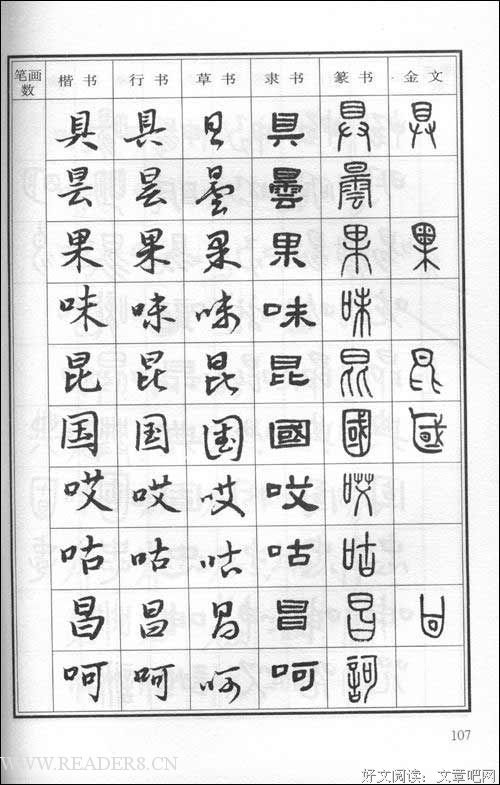 笔画数 楷书 行书 草书 隶书 篆书 金文
具 具 具 具 具 具
昙 昙 曇 曇 曇
果 果 果 果 果 果
味 味 味 味 味
昆 昆 昆 昆 昆 昆
国 国 国 國 國 國
哎 哎 哎 哎 哎
咕 咕 咕 咕 咕
昌 昌 昌 昌 昌 昌
呵 呵 呵 呵 訶
107
WWW.READERS8.CN
好文阅读:文章吧网